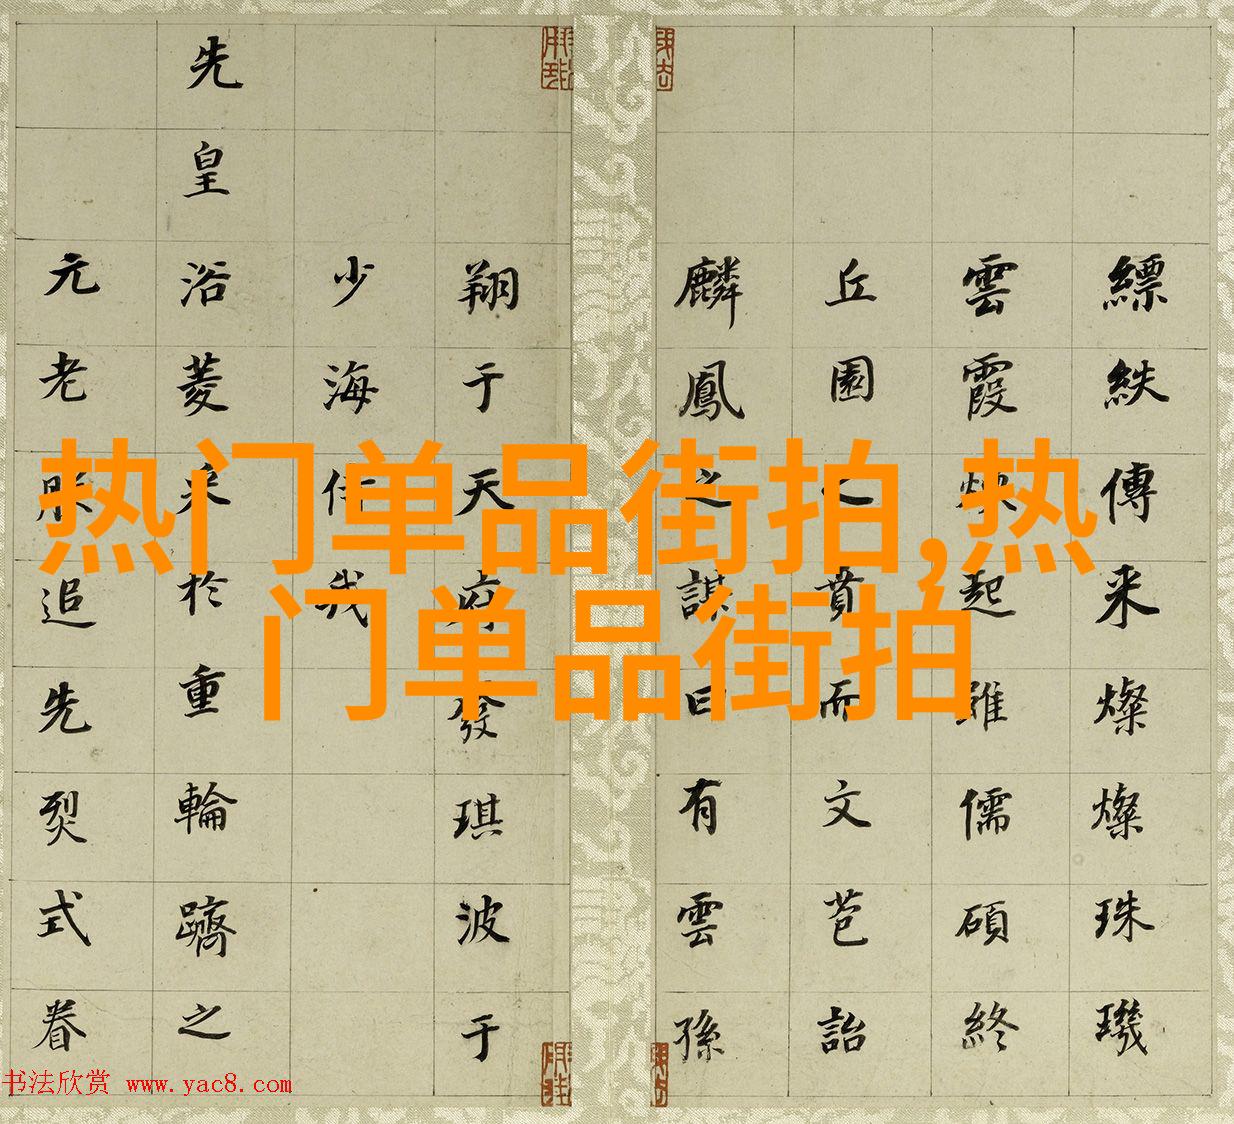 縹帙傳来燦燦珠璣
雲霞煥起雖儒碩終
丘園之賁而文芭詒
麟鳳之謀曰有雲孫
翔于天府發琪波于
少海侍我
先皇浴菱采於重輪躋之
元老眂追先烈式眷
热门单品街拍,热
门单品街拍
书法欣赏 www.yac8.com